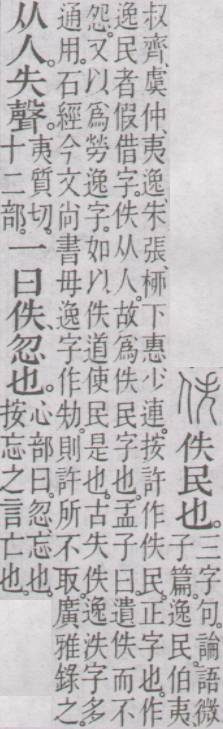 佚
佚民也。
三字句。論語微
子篇。逸民伯夷、
叔齊、虞仲、夷逸、朱張、桺下惠、少連。按許作佚民、正字也。作
逸民者假借字。佚从人。故爲佚民字也。孟子曰遺佚而不
怨。又以爲勞逸字。如以佚道使民是也。古失佚逸泆字多
通用。石經今文尚書毋逸字作劮。則許所不取。廣雅錄之。
从人。失聲。
夷質切。
十二部。
一曰佚、忽也。
心部曰。忽、忘也。
按忘之言亡也。